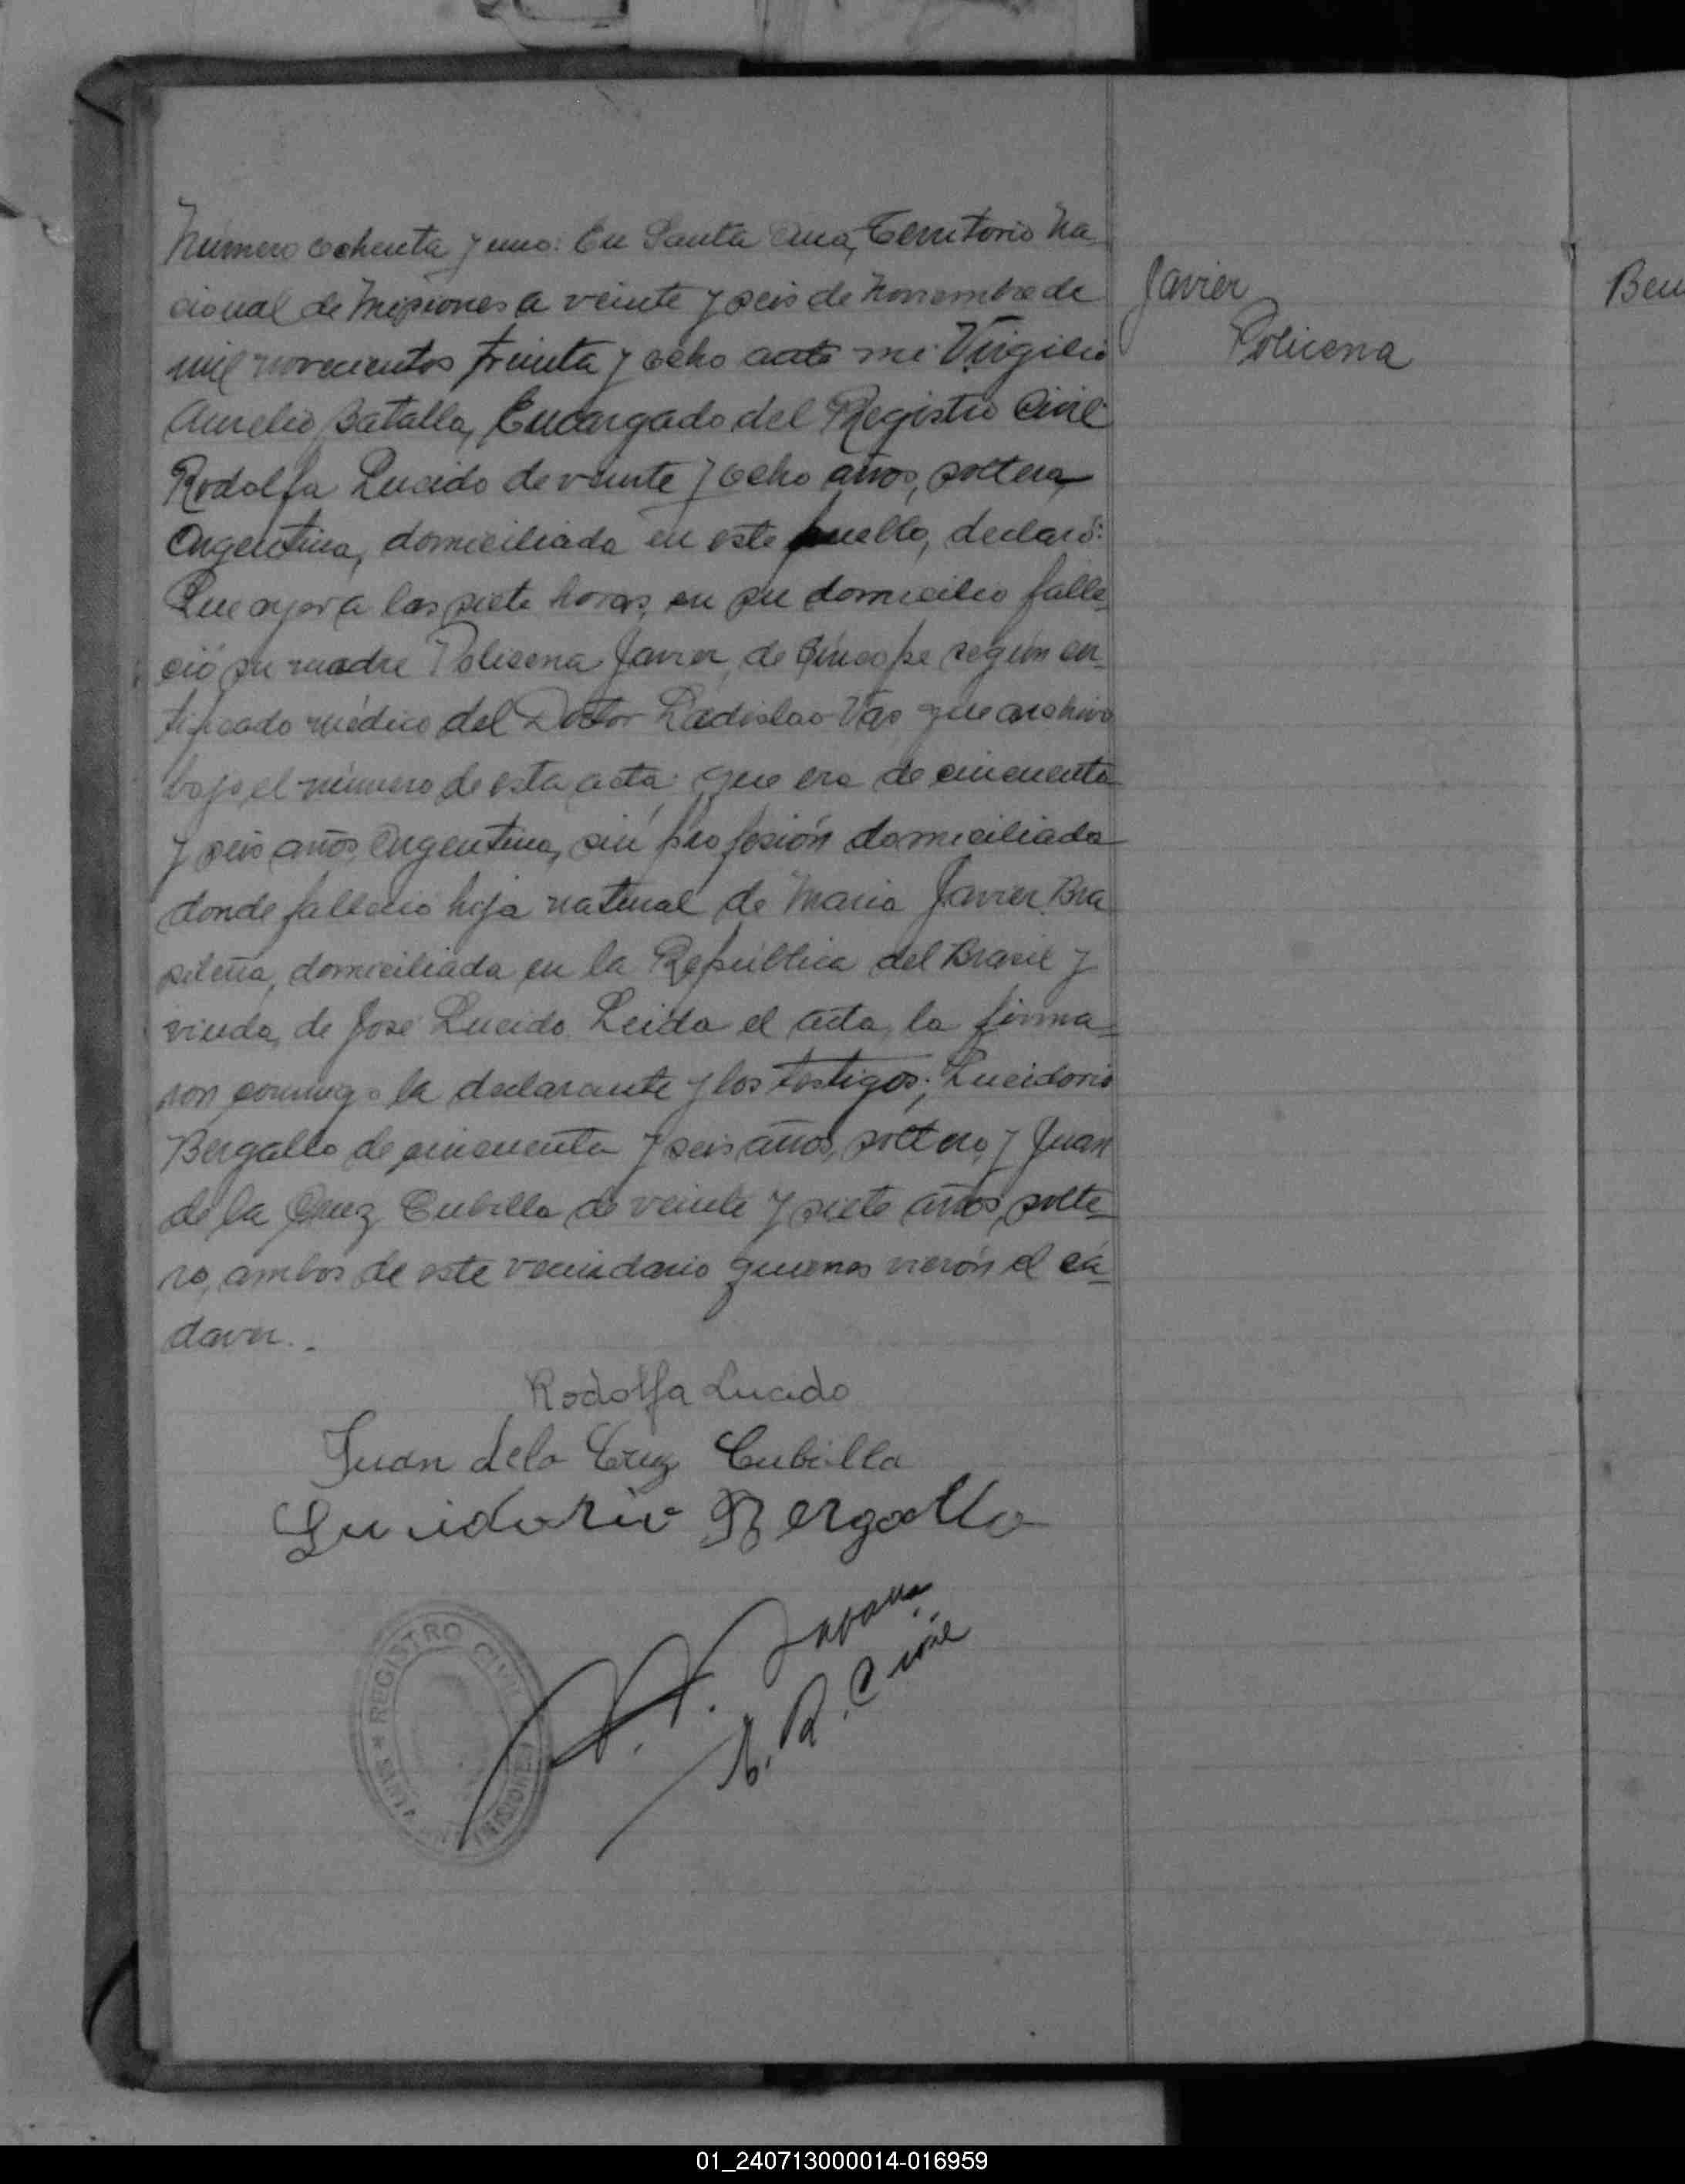 Número ochenta y uno: En Santa Ana, Territorio Na-
cional de Misiones a veinte y seis de Noviembre de
mil novecientos treinta y ocho ante mi Virgilio
Aurelio Batalla, Encargado del Registro Civil
Rodolfa Lucido de veinte y ocho años, soltera
Argentina, domiciliada en este pueblo, declaró:
Que ayer a las siete horas, en su domicilio falle-
ció su madre Policena Javier, de Síncope según cer-
tificado médico del Doctor Ladislao Vas que archivo
bajo el número de esta acta; que era de cincuenta
y seis años, Argentina, sin profesión domiciliada
donde falleció hija natural de Maria Javier Bra
sileña, domiciliada en la República del Brasil y
viuda, de José Lucido. Leida el acta, la firma-
ron conmigo la declarante y los testigos; Lucidorio
Bergallo de cincuenta y seis años, soltero, y Juan
de la Cruz Cubilla de veinte y siete años, solte-
ro, ambos de este vecindario quienes vierón el cá-
daver..
Javier
Policena
Ben
Rodolfa Lucido
Juan dela Cruz Cubilla
Lucidorio Bergallo
REGISTRO CIVIL
MISIONES
E. R. Civil
01_240713000014-016959